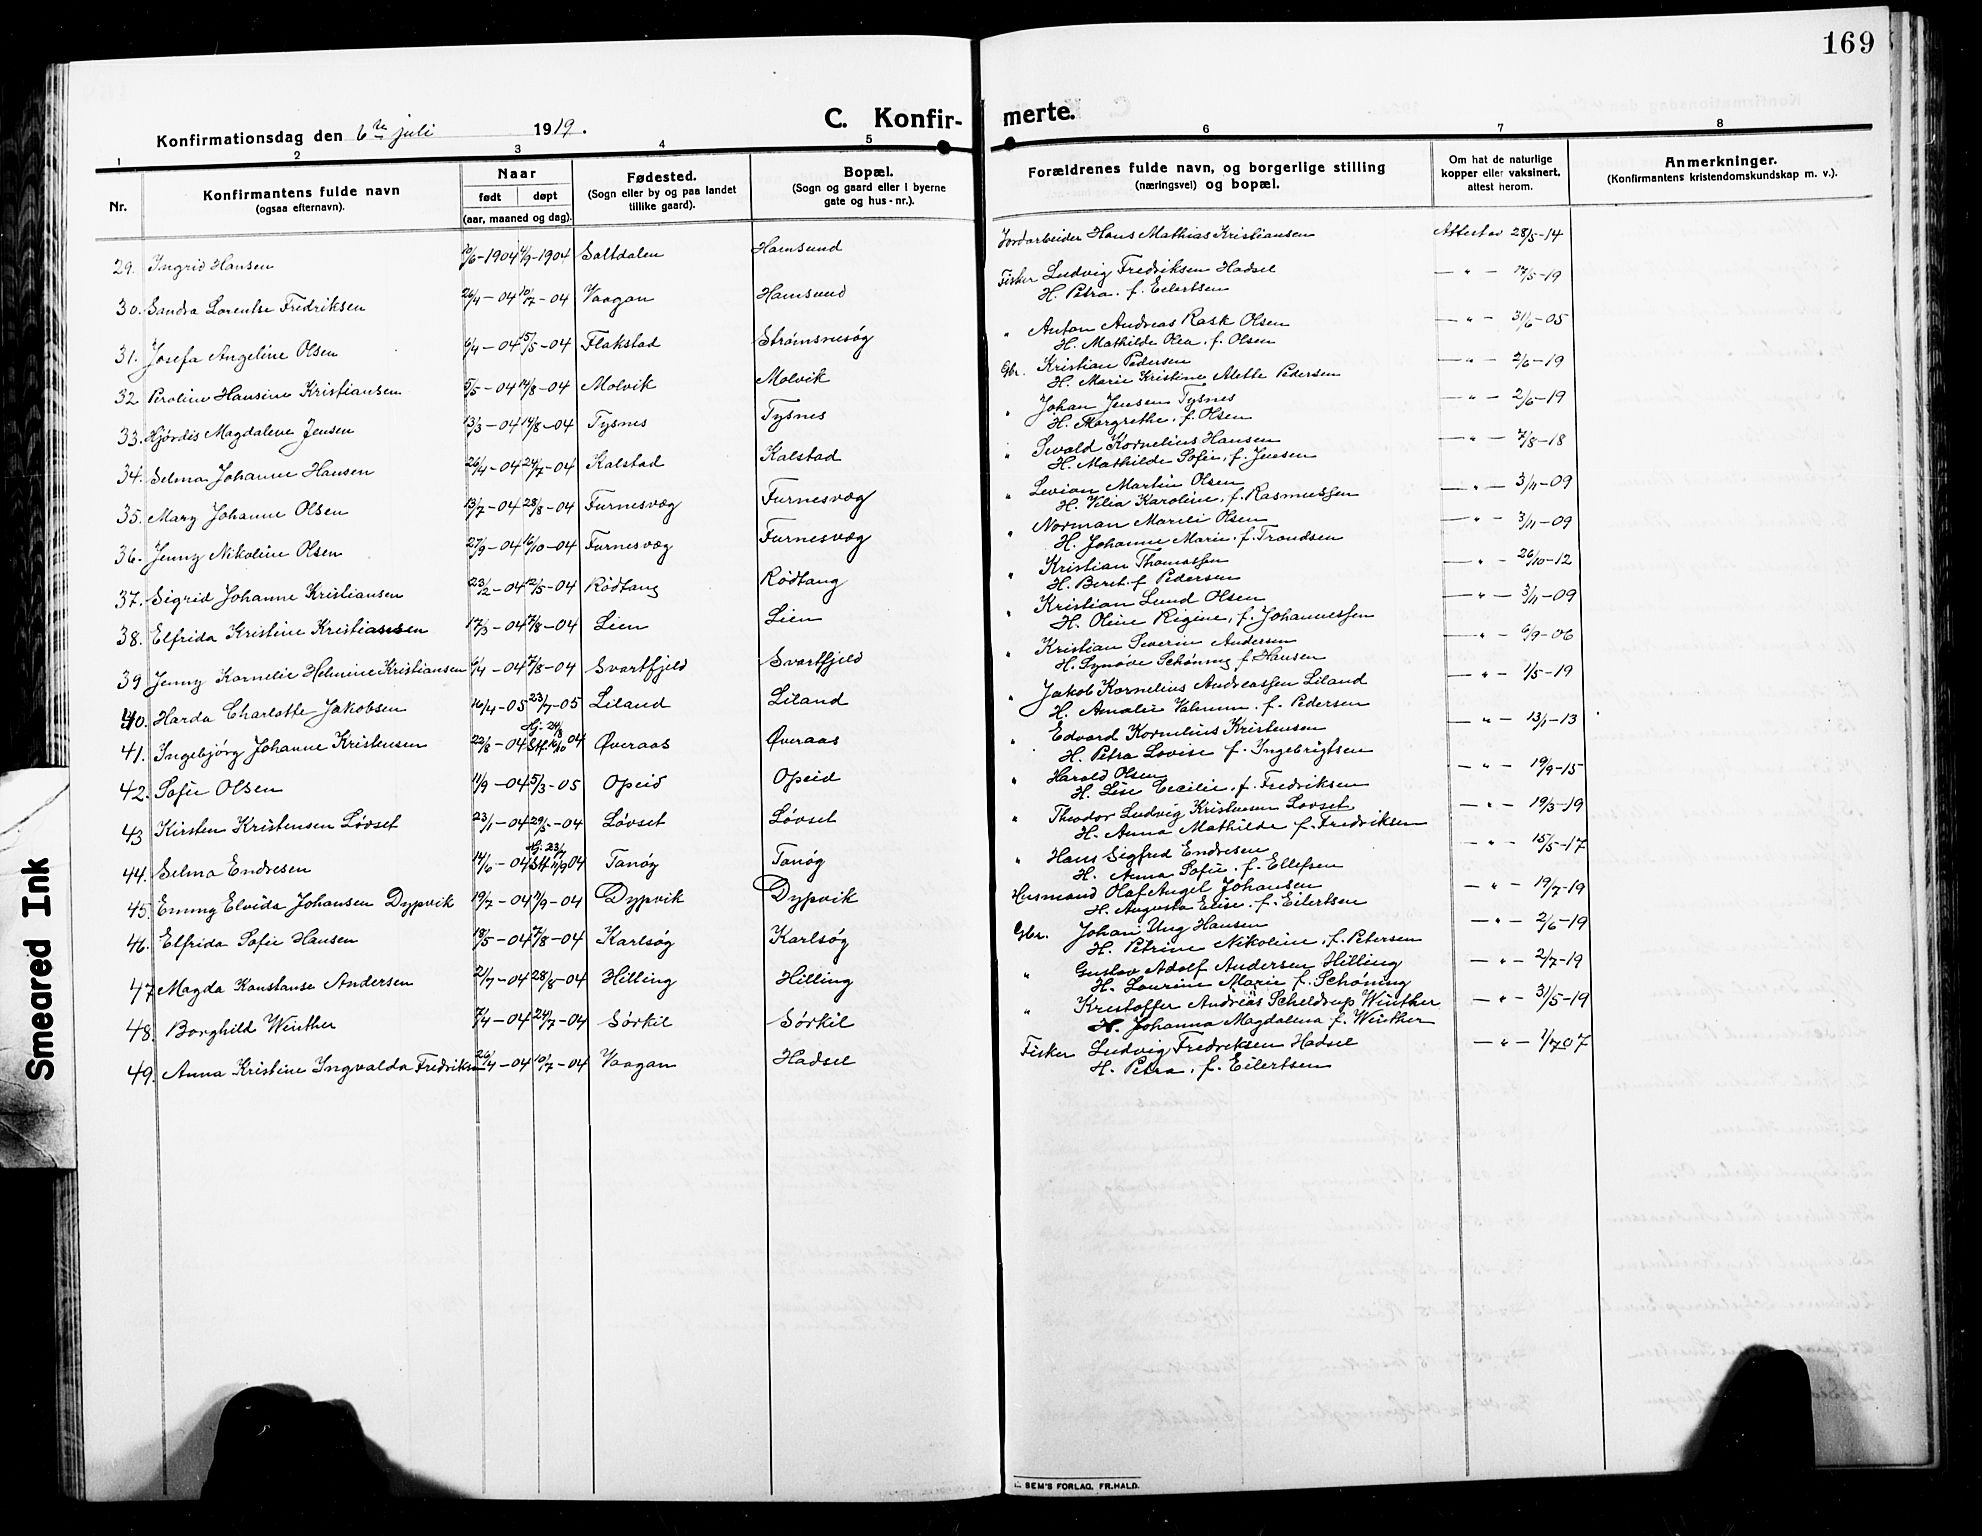 169
Konfirmationsdag den 6te juli 1919.
C. Konfir-merte.
1 2 3 4 5 6 7 8
Nr.
Konfirmantens fulde navn
(ogsaa efternavn).
Naar
født døpt
(aar, maaned og dag).
Fødested.
(Sogn eller by og paa landet
tillike gaard).
Bopæl.
(Sogn og gaard eller i byerne
gate og hus-nr.).
Forældrenes fulde navn, og borgerlige stilling
(næringsvei) og bopæl.
Om hat de naturlige
kopper eller vaksinert,
attest herom.
Anmerkninger.
(Konfirmantens kristendomskundskap m. v.).
29. Ingrid Hansen 20/6-1904 4/9-1904 Saltdalen Hamsund Jordarbeider Hans Mathias Kristiansen Attest av 28/5-14
30. Sandra Lorentse Fredriksen 26/4-04 10/7-04 Vaagan Hamsund Fisker Ludvig Fredriksen Hadsel - " - 17/5-19
H. Petra. f. Eilertsen
31. Josefa Angeline Olsen 6/4-04 15/5-04 Flakstad Strømsnesøg " Anton Andreas Rask Olsen - " - 31/6-05
H. Mathilde Olea, f. Olsen
32. Peroline Hansine Kristiansen 5/5-04 14/8-04 Molvik Molvik Gbr. Kristian Pedersen - " - 2/6-19
H. Marie Kristine Alette Pedersen
33. Hjørdis Magdalene Jensen 13/3-04 14/8-04 Tysnes Tysnes " Johan Jensen Tysnes - " - 2/6-19
H. Margrethe, f. Olsen
34. Selma Johanne Hansen 26/4-04 24/7-04 Kalstad Kalstad " Sevald Kornelius Hansen - " - 7/8-18
H. Mathilde Sofie, f. Jensen
35. Mary Johanne Olsen 13/7-04 28/8-04 Furnesvæg Furnesvæg " Levian Martin Olsen - " - 3/11-09
H. Vilia Karoline, f. Rasmussen
36. Jenny Nikoline Olsen 27/9-04 16/10-04 Furnesvæg Furnesvæg " Norman Mareli Olsen - " - 3/11-09
H. Johanne Marie, f. Trondsen
37. Sigrid Johanne Kristiansen 23/2-04 12/5-04 Rødtang Rødtang " Kristian Thomassen - " - 26/10-12
H. Berit f. Pedersen
38. Elfrida Kristine Kristiansen 17/3-04 7/8-04 Lien Lien " Kristian Lund Olsen - " - 3/11-09
H. Oline Regine, f. Johannessen
39 Jenny Kornelie Helmine Kristiansen 6/4-04 7/8-04 Svartfjeld Svartfjeld " Kristian Severin Andersen - " - 6/9-06
H. Synøve Schøning f. Hansen
40. Harda Charlotte Jakobsen 16/4-05 23/7-05 Liland Liland " Jakob Kornelius Andreassen Liland - " - 1/5-19
H. Amalie f. Pedersen
41. Ingebjørg Johanne Kristensen 22/8-04 Hj. 24/8 Stf. 16/10 04 Øveraas Øveraas " Edvard Kornelius Kristensen - " - 13/1-13
H. Petra Lovise f. Ingebrigtsen
42. Sofie Olsen 11/9-04 5/3-05 Opeid Opeid " Harald Olsen - " - 19/9-15
H. Lise Cecilie, f. Fredriksen
43 Kirsten Kristensen Løvset 23/1-04 29/5-04 Løvset Løvset " Theodor Ludvig Kristensen Løvset - " - 19/3-19
H. Anna Mathilde f. Fredriksen
44. Selma Endresen 14/6-04 Hj. 23/7 Stf. 11/9 04 Tanøg Tanøg " Hans Sigfred Endresen - " - 15/5-17
H. Anna Sofie, f. Ellefsen
45. Emmy Elvida Johansen Dypvik 19/7-04 11/9-04 Dypvik Dypvik Husmand Olaf Angel Johansen - " - 19/7-19
H. Augusta Elise, f. Eilertsen
46. Elfrida Sofie Hansen 18/5-04 7/8-04 Karlsøg Karlsøg Gbr. Johan Ung Hansen - " - 2/6-19
H. Petrine Nikoline, f. Petersen
47 Magda Konstanse Andersen 21/7-04 28/8-04 Hilling Hilling " Gustav Adolf Andersen Hilling - " - 2/7-19
H. Laurine Marie f. Schøning
48. Borghild Winther 7/4-04 24/7-04 Sørkil Sørkil " Kristoffer Andreas Scheldrup Winther - " - 31/5-19
H. Johanna Magdalena f. Winther
49. Anna Kristine Ingvalda Fredriksen 26/4-04 10/7-04 Vaagan Hadsel Fisker Ludvig Fredriksen Hadsel - " - 1/7 07
H. Petra, f. Eilertsen
SEM'S FORLAG, FR.HALD.
Smeared Ink